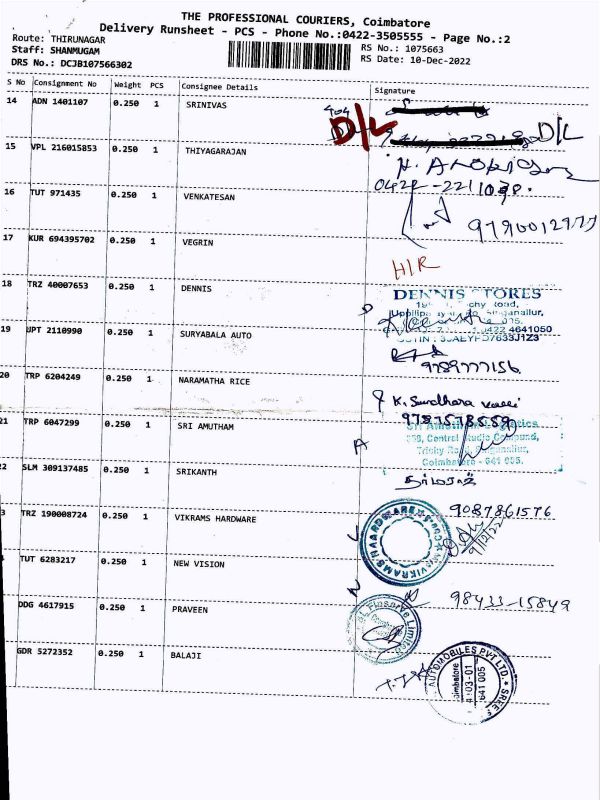 THE PROFESSIONAL COURIERS, Coimbatore
Delivery Runsheet - PCS - Phone No.:0422-3505555 - Page No.:2
Route: THIRUNAGAR
Staff: SHANMUGAM
DRS No.: DCJB107566302
RS No.: 1075663
RS Date: 10-Dec-2022
S No Consignment No Weight PCS Consignee Details Signature
14 ADN 1401107 0.250 1 SRINIVAS
D/L
D/L
15 VPL 216015853 0.250 1 THIYAGARAJAN
0422-2211030.
16 TUT 971435 0.250 1 VENKATESAN
9790012977
17 KUR 694395702 0.250 1 VEGRIN
H/R
18 TRZ 40007653 0.250 1 DENNIS
DENNIS STORES
0422 4641050
19 UPT 2110990 0.250 1 SURYABALA AUTO
9789777156
20 TRP 6204249 0.250 1 NARAMATHA RICE
21 TRP 6047299 0.250 1 SRI AMUTHAM
Coimbatore - 641 005.
22 SLM 309137485 0.250 1 SRIKANTH
3 TRZ 190008724 0.250 1 VIKRAMS HARDWARE
9087861576
9/12/22
TUT 6283217 0.250 1 NEW VISION
DDG 4617915 0.250 1 PRAVEEN
98433-15849
GDR 5272352 0.250 1 BALAJI
AUTOMOBILES PVT LTD.
641 005